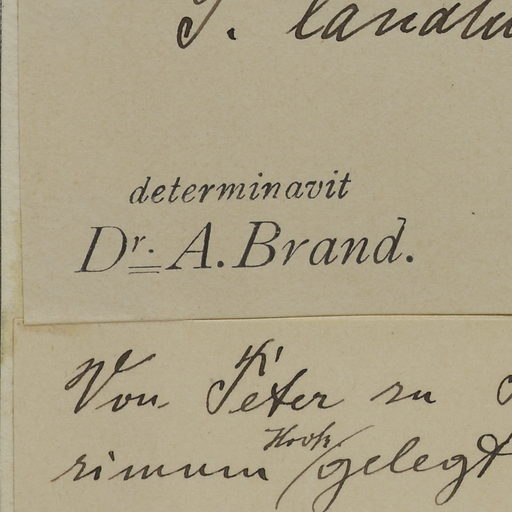 determinavit
Dr. A. Brand.
Von Peter zu
rimum Hook. gelegt